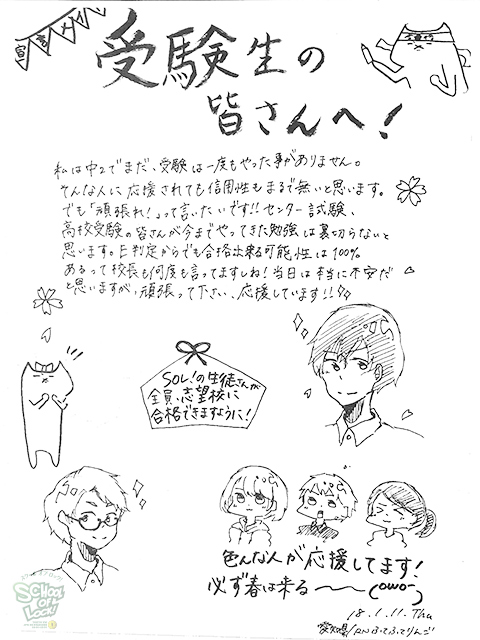 受験生の
皆さんへ!
私は中2でまだ、受験は一度もやった事がありません。
そんな人に応援されても信用性もまるで無いと思います。
でも「頑張れ!」って言いたいです!!センター試験、
高校受験の皆さんが今までやってきた勉強は裏切らないと
思います。E判定からでも合格出来る可能性は100%
あるって校長も何度も言ってますしね!当日は本当に不安だ
と思いますが、頑張って下さい、応援しています!!
SOL!の生徒さんが
全員、志望校に
合格できますように!
色んな人が応援してます!
必ず春は来る〜〜(OwO-)
18.1.11.Thu
愛知県/RNふてふてりんご
SCHOOL
OF
LOCK!